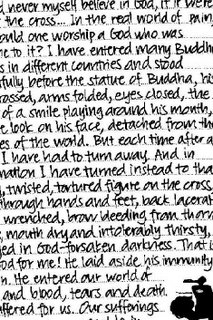 d never myself believe in God, if it were
t the cross... In the real world of pain,
ould one worship a God who was
ne to it? I have entered many Buddh
s in different countries and stood
fully before the statue of Buddha, his
rossed, arms folded, eyes closed, the
of a smile playing around his mouth,
te look on his face, detached from the
es of the world. But each time after a
I have had to turn away. And in
nation I have turned instead to that
, twisted, tortured figure on the cross,
through hands and feet, back lacerat
wrenched, brow bleeding from thorn
, mouth dry and intolerably thirsty,
ged in God-forsaken darkness. That i
God for me! He laid aside his immunity
n. He entered our world of
and blood, tears and death.
uffered for us. Our sufferings